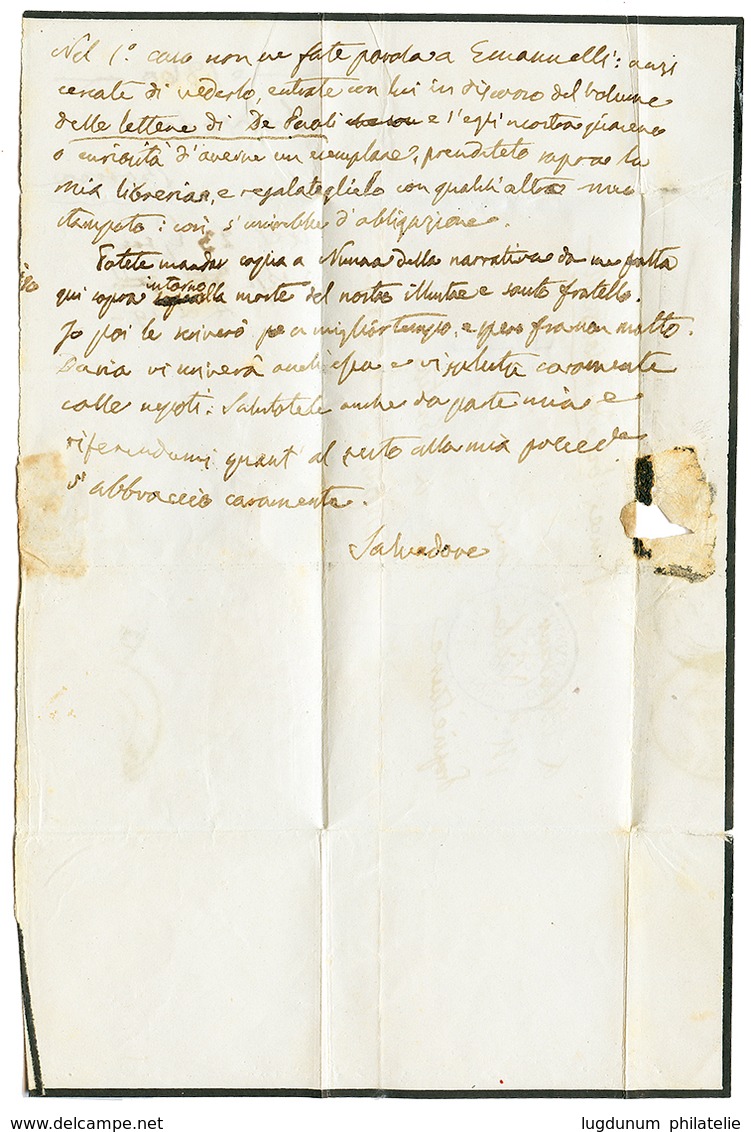 Nel 1.° caso non ne fate parola a Emanuelli: anzi
cercate di vederlo, entrate con lui in discorso del volume
delle lettere di De Paoli e s'egli mostra piacere
o curiosità d'averne un esemplare, prendetelo sopra la
mia libreria, e regalateglielo con qualch'altro mio
stampato: così s'unirebbe d'obligazione.
Potete mandar copia a Nunna della narrativa da me fatta
qui sopra intorno alla morte del nostro illustre e santo fratello.
Io poi le scriverò per miglior tempo, e spero fra non molto.
Daria vi scriverà anch'essa e vi saluta caramente
colle nepoti: Salutatele anche da parte mia e
riferendomi quant' al resto alla mia preced.e
v'abbraccio caramente.
Salvadore
lugdunum philatelie